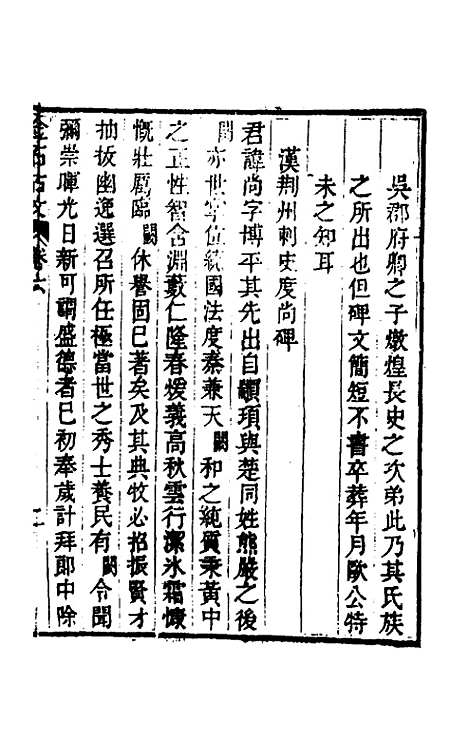 吳郡府卿之子燉煌長史之次弟此乃其氏族
之所出也但碑文簡短不書卒葬年月歐公特
未之知耳
漢荆州刺史度尚碑
君諱尚字博平其先出自顓頊與楚同姓熊嚴之後
闕亦世掌位統國法度秦兼天闕和之純質秉黃中
之正性智含淵藪仁隆春煖義高秋雲行潔氷霜慷
慨壯厲臨闕休譽固已著矣及其典牧必招振賢才
抽拔幽逸選召所任極當世之秀士養民有闕令聞
彌崇暉光日新可謂盛德者已初奉歲計拜郎中除
金石古文 卷六